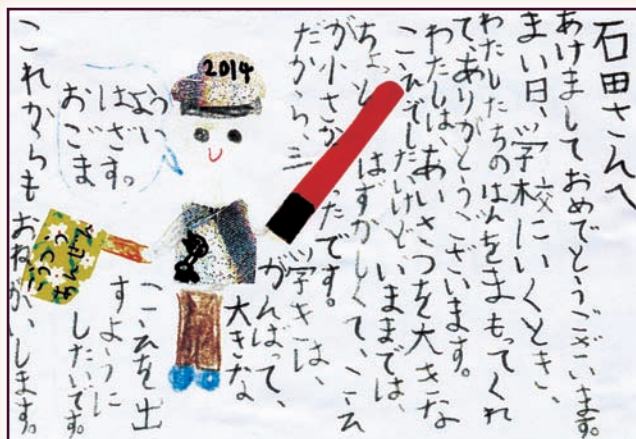 石田さんへ
あけましておめでとうございます。
まい日、学校にいくとき、
わたしたちのはんをまもってくれ
て、ありがとうございます。
わたしは、あいさつを大きな
こえでしたいけど、いままでは、
ちょっと はずかしくて、こえ
が小さかったです。
だから、三学きは、
がんばって、
大きな
こえを出
すように
したいです。
これからもおねがいします。
2014
おはよう
ござい
ます。
こうつう
あんぜん